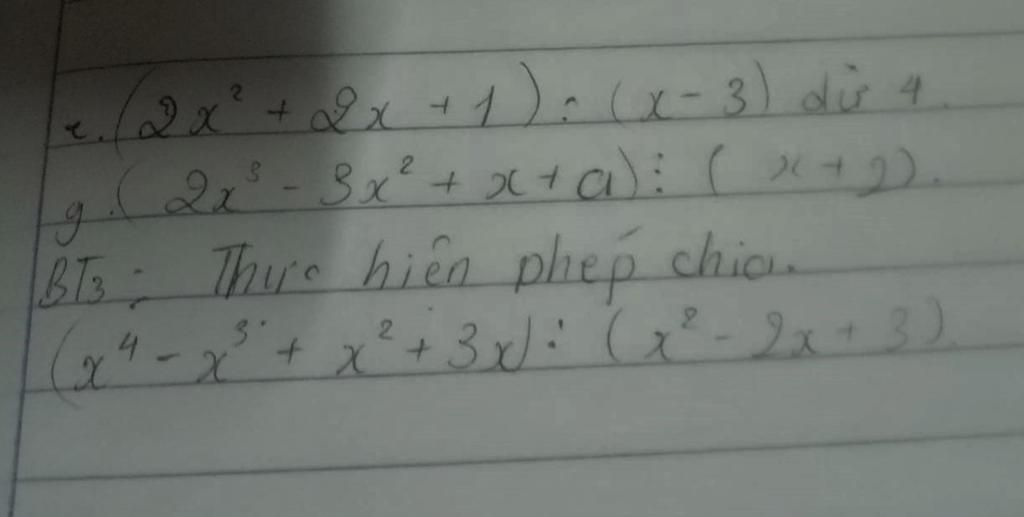 e. (2x² + 2x + 1) : (x - 3) dư 4.
g. (2x³ - 3x² + x + a) ⋮ (x + 2).
BT3: Thực hiện phép chia.
(x⁴ - x³ + x² + 3x) : (x² - 2x + 3).